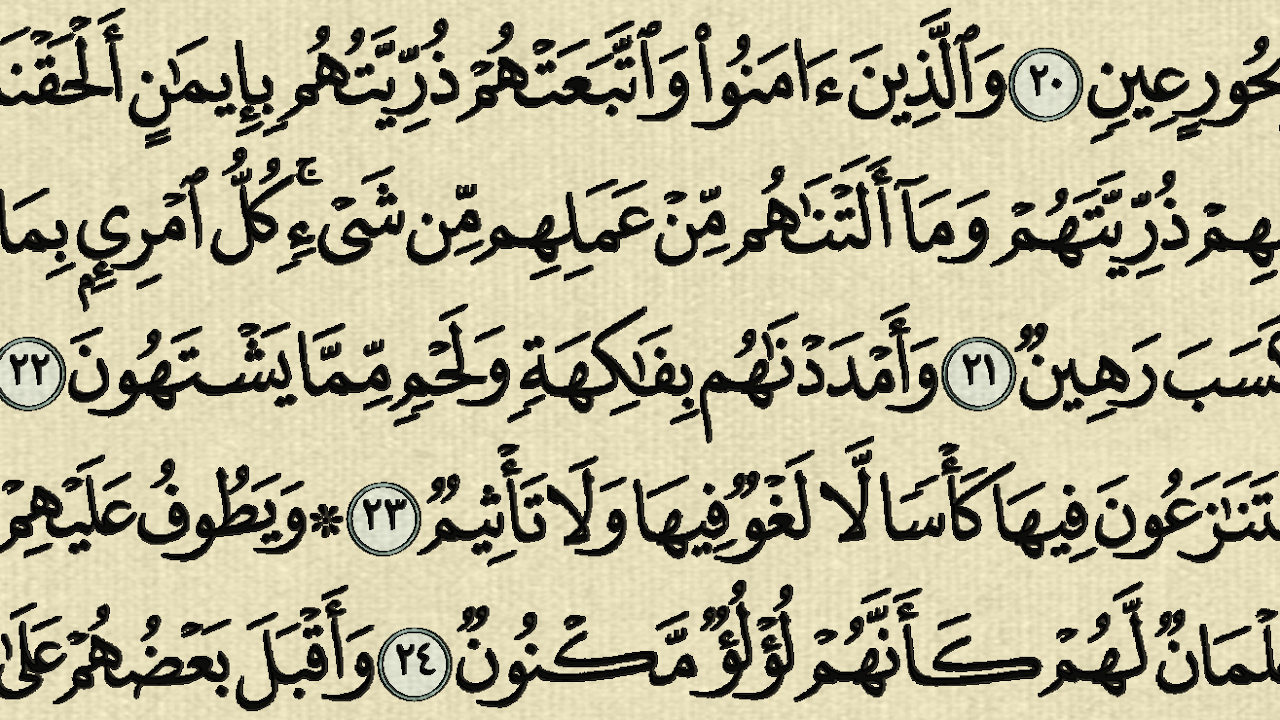 بِحُورٍ عِينٍ ٢٠ وَٱلَّذِينَ ءَامَنُوا۟ وَٱتَّبَعَتْهُمْ ذُرِّيَّتُهُم بِإِيمَٰنٍ أَلْحَقْنَا
بِهِمْ ذُرِّيَّتَهُمْ وَمَآ أَلَتْنَٰهُم مِّنْ عَمَلِهِم مِّن شَىْءٍ ۚ كُلُّ ٱمْرِئٍۭ بِمَا
كَسَبَ رَهِينٌ ٢١ وَأَمْدَدْنَٰهُم بِفَٰكِهَةٍ وَلَحْمٍ مِّمَّا يَشْتَهُونَ ٢٢
يَتَنَٰزَعُونَ فِيهَا كَأْسًا لَّا لَغْوٌ فِيهَا وَلَا تَأْثِيمٌ ٢٣ ۞ وَيَطُوفُ عَلَيْهِمْ
غِلْمَانٌ لَّهُمْ كَأَنَّهُمْ لُؤْلُؤٌ مَّكْنُونٌ ٢٤ وَأَقْبَلَ بَعْضُهُمْ عَلَىٰ